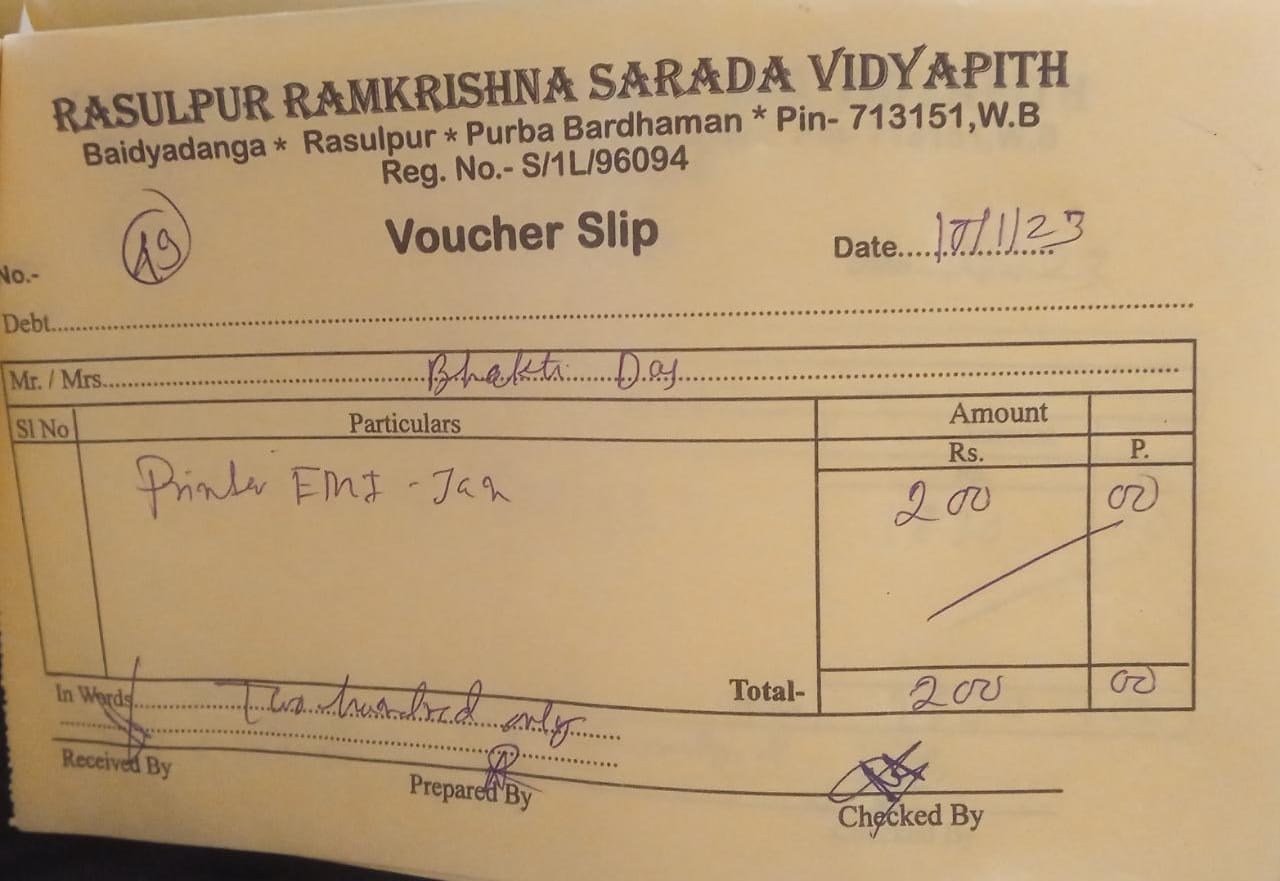 RASULPUR RAMKRISHNA SARADA VIDYAPITH
Baidyadanga * Rasulpur * Purba Bardhaman * Pin- 713151,W.B
Reg. No.- S/1L/96094
Voucher Slip
No.- 19
Date.....10/1/23
Debt.....
Mr. / Mrs.....Bhakti Das
Sl No Particulars Amount
Rs. P.
Printer EMI - Jan 200 00
Total- 200 00
In Words Two hundred only
Received By Prepared By Checked By